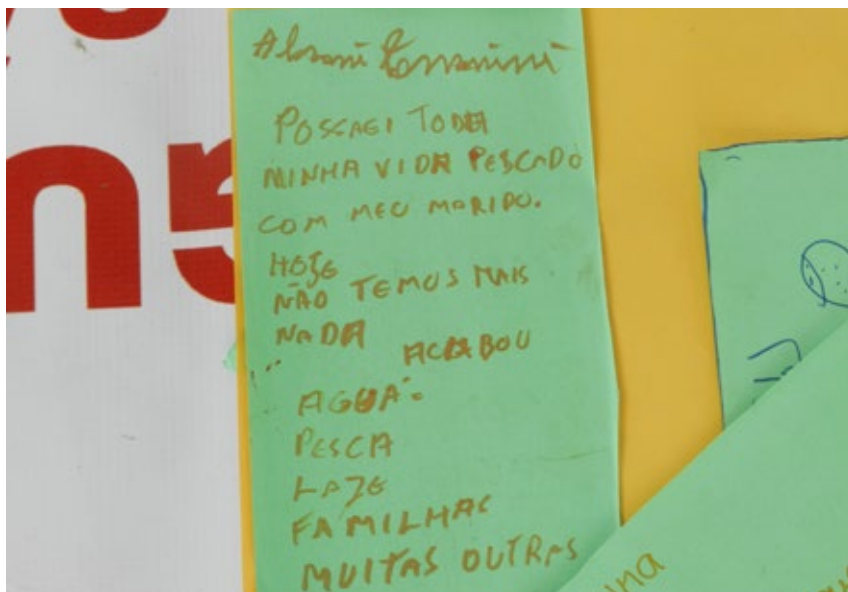 POSCAGI TODA
MINHA VIDA PESCADO
COM MEU MARIDO.
HOJE
NÃO TEMOS MAIS
NADA
ACABOU
AGUA
PESCA
LAZE
FAMILHAS
MUITAS OUTRAS